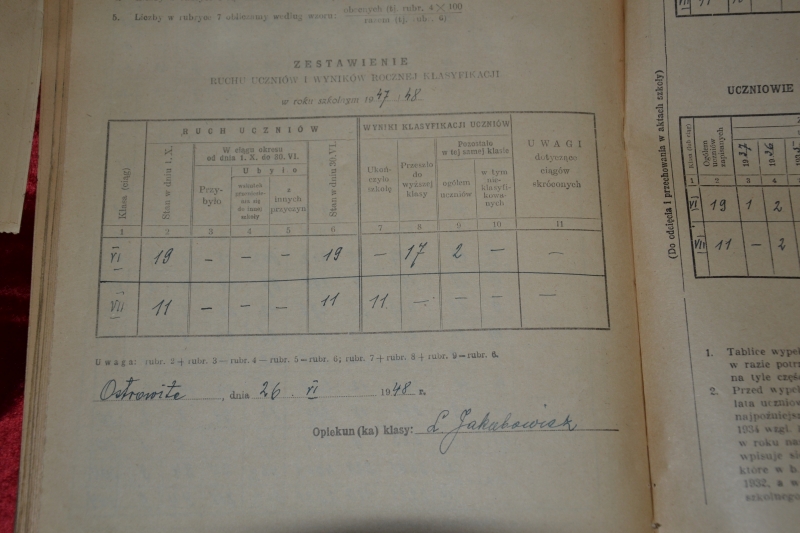 5. Liczby w rubryce 7 obliczamy według wzoru: obecnych (tj. rubr. 4) × 100
razem (tj. rubr. 6)
ZESTAWIENIE
RUCHU UCZNIÓW I WYNIKÓW ROCZNEJ KLASYFIKACJI
w roku szkolnym 1947/48
Klasa (ciąg)
RUCH UCZNIÓW
Stan w dniu 1. X.
W ciągu okresu
od dnia 1. X. do 30. VI.
Przy-
było
Ubyło
z
innych
przyczyn
Stan w dniu 30. VI.
WYNIKI KLASYFIKACJI UCZNIÓW
Ukoń-
czyło
szkołę
Przeszło
do
wyższej
klasy
Pozostało
w tej samej klasie
ogółem
uczniów
w tym
nie-
klasyfi-
kowa-
nych
UWAGI
dotyczące
ciągów
skróconych
1 2 3 4 5 6 7 8 9 10 11
VI 19 — — — 19 — 17 2 — —
VII 11 — — — 11 11 — — — —
Uwaga: rubr. 2 + rubr. 3 — rubr. 4 — rubr. 5 = rubr. 6; rubr. 7 + rubr. 8 + rubr. 9 = rubr. 6.
Ostrowite, dnia 26. VI 1948 r.
Opiekun (ka) klasy: L. Jakubowisk
(Do odcięcia i przechowania w aktach szkoły)
UCZNIOWIE
Klasa (lub ciąg)
Ogółem
uczniów
zapisanych
1937
1936
1 2 3 4
VI 19 1 2
VII 11 — 2
1. Tablice wypeł
w razie potrz
na tyle częśc
2. Przed wypeł
lata uczniów
najpóźniejsz
1934 wzgl.
w roku na
wpisuje si
które w b.
1932, a w
szkolnego